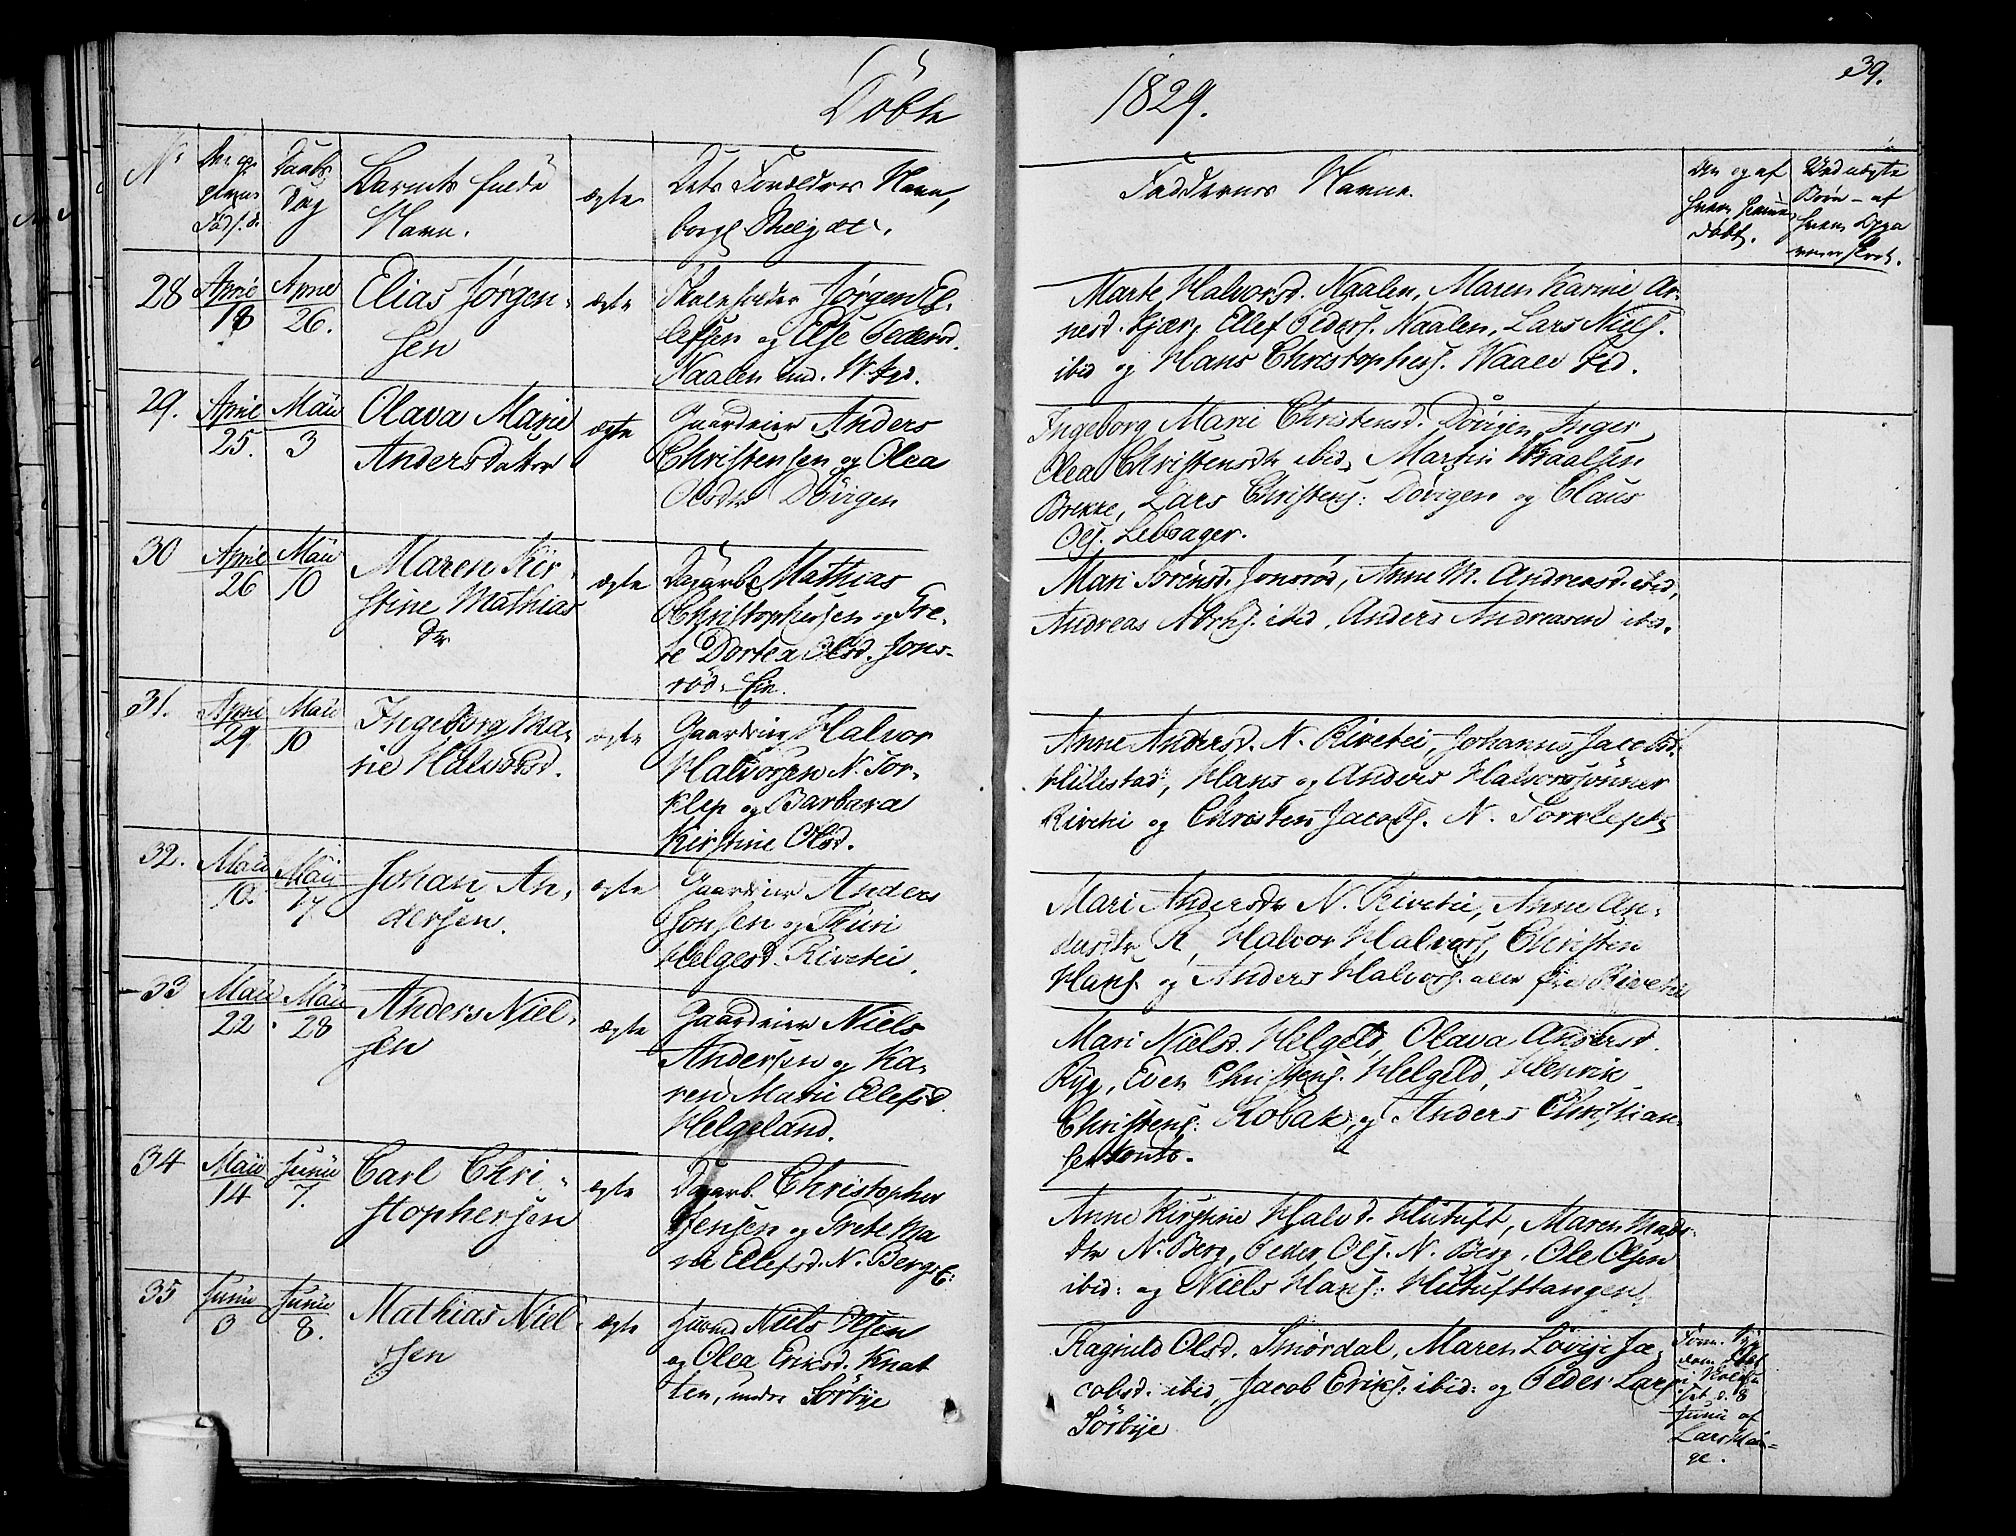 Döbte
1829.
39.
Nr
Daabs
Dag
Barnets fulde
Navn.
ægte
Dets Forældres Navn,
Faddernes Navne.
Den og af
hvem hieme
döbt.
Börn - af
28
April
18
April
26.
Elias Jørgen-
sen
ægte
Skoleholder Jørgen El-
lefsen og Else Pedersd.
Naalen und. W. Aas.
Marte Halvorsd. Naalen, Maren Karine Ar-
nesd. Kjær, Ellef Peders. Naalen, Lars Niels.
ibid og Hans Christophers. Waale Eid.
29.
April
25.
Maii
3
Olava Marie
Andersdatter
ægte
Gaardeier Anders
Christensen og Olea
Olsdtr Dövigen
Ingeborg Marie Christensd. Dövigen, Inger
Olea Christensdtr ibid, Martin Waalsen
Brekke, Lars Christens: Dövigen og Claus
Ols. Lebsager.
30
April
26
Maii
10
Maren Kir-
stine Mathias
dtr
ægte
Dagarb. Mathias
Christophersen og Gre-
te Dortea Olsd. Jons-
röd. Eie.
Mari Sörensd. Jonsröd, Anne M. Andreasd. ibid,
Andreas Abrhs. ibid, Anders Andreasen ibid.
31.
April
29
Maii
10
Ingeborg Ma-
rie Halvorsd.
ægte
Gaardeier Halvor
Halvorsen N. Tor-
klep og Barbara
Kirstine Olsd.
Anne Andersd. N. Rivetei, Johannes Jacobs.
Hillestad, Hans og Anders Halvorssönner
Rivetei og Christen Jacobs. N. Torklep
32.
Maii
10.
Maii
17
Johan An-
dersen.
ægte
Gaardeier Anders
Jonsen og Thuri
Helgesd. Rivetei.
Mari Andersdtr N. Rivetei, Anne An-
dersdtr R, Halvor Halvors, Christen
Hans. og Anders Halvors. alle fra Rivetei
33
Maii
22
Maii
28
Anders Niel-
sen
ægte
Gaardeier Niels
Andersen og Ka-
ren Marie Elefsd.
Helgeland.
Mari Nielsd. Helgeld, Olava Andersd.
Ryg, Even Christens. Helgeld, Henrik
Christens: Kobak, og Anders Christian-
sen
34
Maii
14
Junii
7.
Carl Chri-
stophersen
ægte
Dagarb. Christopher
Jensen og Grete Ma
rie Ellefsd. N. Bergs E:
Anne Kirstine Halvd. Hutuft, Maren Mads-
dtr N. Berg, Peder Ols. N. Berg, Ole Olsen
ibid: og Niels Hans: Hutufttangen.
35
Junii
3
Junii
8.
Mathias Niel
sen
ægte
Huusmd Niels Olsen
og Olea Eriksd. Knat
ten, under Sörbye
Ragnild Olsd. Smördal, Maren Lovise Ja-
cobsd: ibid, Jacob Eriks: ibid: og Peder Lars
Sörbye
d. 8
Junii af
Lars Hau-
ge.